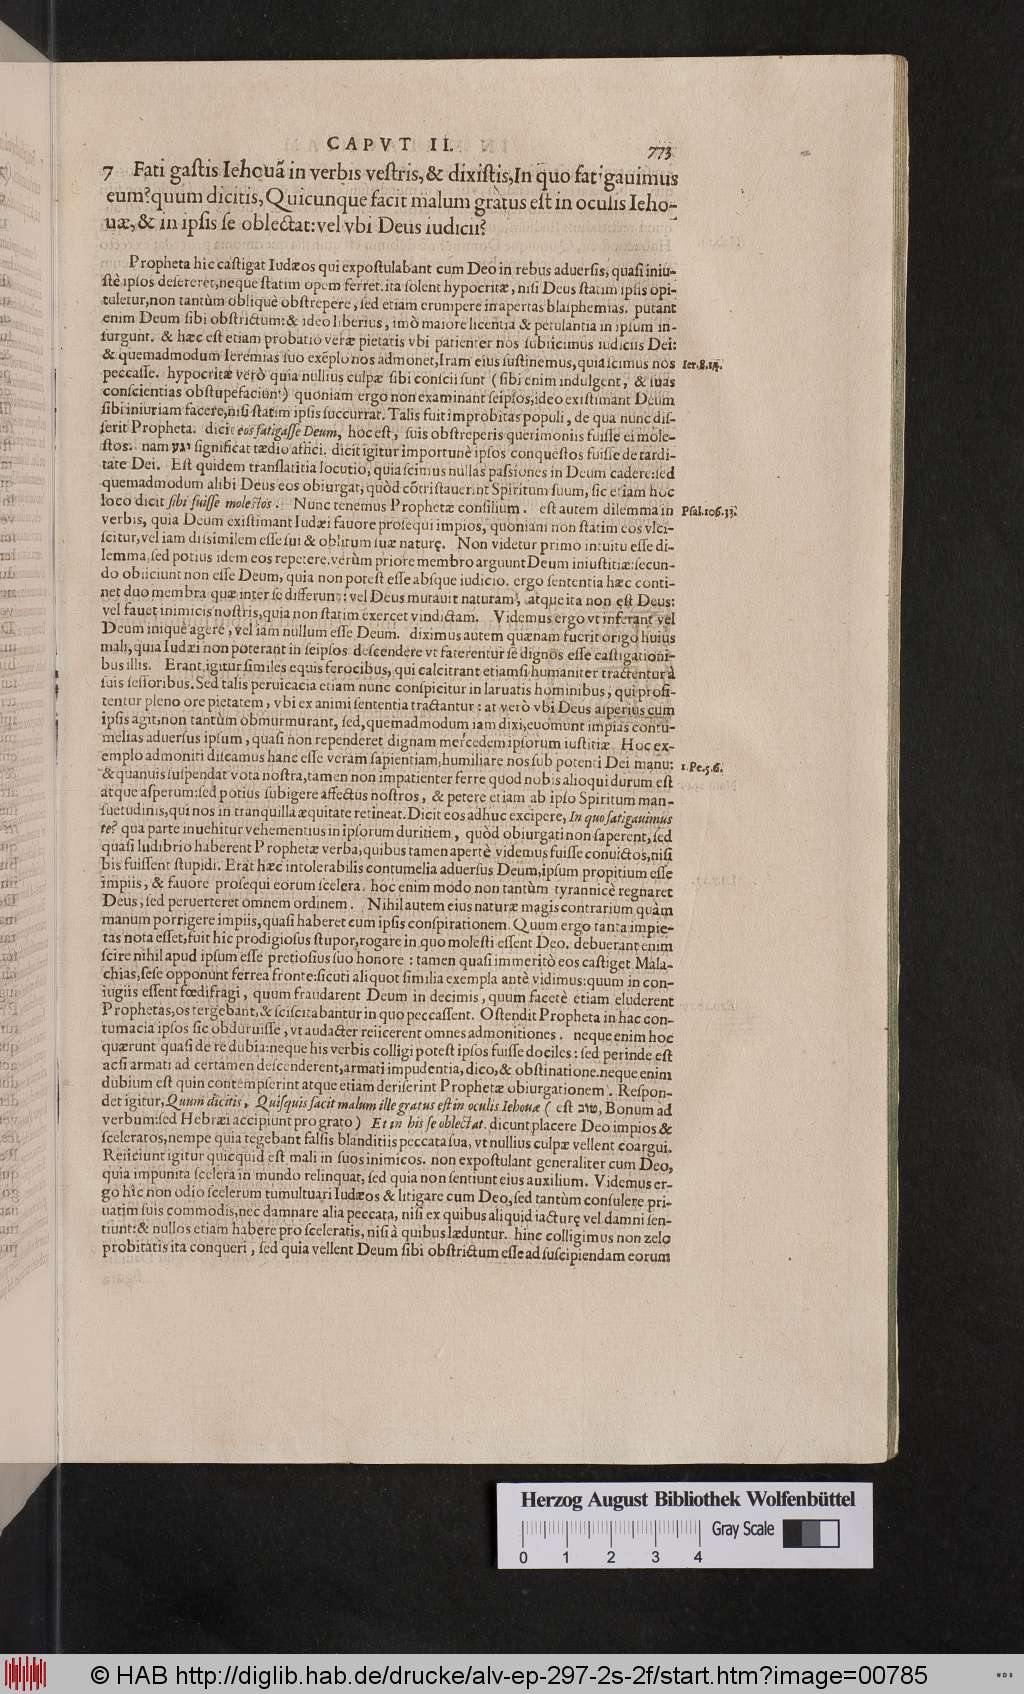 CAPVT II.
773
7 Fati gaſtis Iehouã in verbis veſtris, & dixiſtis, In quo fatigauimus
eum? quum dicitis, Quicunque facit malum gràtus eſt in oculis Ieho-
uæ, & in ipſis ſe oblectat: vel vbi Deus iudicii?
Propheta hic caſtigat Iudæos qui expoſtulabant cum Deo in rebus aduerſis, quaſi iniu-
ſtè ipſos deſereret, neque ſtatim opem ferret. ita ſolent hypocritæ, niſi Deus ſtatim ipſis opi-
tuletur, non tantùm obliquè obſtrepere, ſed etiam erumpere in apertas blaſphemias. putant
enim Deum ſibi obſtrictum: & ideo liberius, imò maiore licentia & petulantia in ipſum in-
ſurgunt. & hæc eſt etiam probatio veræ pietatis vbi patienter nos ſubiicimus iudiciis Dei:
& quemadmodum Ieremias ſuo exẽplo nos admonet, Iram eius ſuſtinemus, quia ſcimus nos
Ier.8.14.
peccaſſe. hypocritæ verò quia nullius culpæ ſibi conſcii ſunt (ſibi enim indulgent, & ſuas
conſcientias obſtupefaciunt) quoniam ergo non examinant ſeipſos, ideo exiſtimant Deum
ſibi iniuriam facere, niſi ſtatim ipſis ſuccurrat. Talis fuit improbitas populi, de qua nunc diſ-
ſerit Propheta. dicit eos fatigaſſe Deum, hoc eſt, ſuis obſtreperis querimoniis fuiſſe ei mole-
ſtos. nam יגע ſignificat tædio affici. dicit igitur importunè ipſos conqueſtos fuiſſe de tardi-
tate Dei. Eſt quidem tranſlatitia locutio, quia ſcimus nullas paſsiones in Deum cadere: ſed
quemadmodum alibi Deus eos obiurgat, quòd cõtriſtauerint Spiritum ſuum, ſic etiam hoc
loco dicit ſibi fuiſſe moleſtos. Nunc tenemus Prophetæ conſilium. eſt autem dilemma in
Pſal.106.33.
verbis, quia Deum exiſtimant Iudæi fauore proſequi impios, quoniam non ſtatim eos vlci-
ſcitur, vel iam diſsimilem eſſe ſui & oblitum ſuæ naturę. Non videtur primo intuitu eſſe di-
lemma, ſed potius idem eos repetere. verùm priore membro arguunt Deum iniuſtitiæ: ſecun-
do obiiciunt non eſſe Deum, quia non poteſt eſſe abſque iudicio. ergo ſententia hæc conti-
net duo membra quæ inter ſe differunt: vel Deus mutauit naturam, atque ita non eſt Deus:
vel fauet inimicis noſtris, quia non ſtatim exercet vindictam. Videmus ergo vt inferant vel
Deum iniquè agere, vel iam nullum eſſe Deum. diximus autem quænam fuerit origo huius
mali, quia Iudæi non poterant in ſeipſos deſcendere vt faterentur ſe dignos eſſe caſtigationi-
bus illis. Erant igitur ſimiles equis ferocibus, qui calcitrant etiamſi humaniter tractentur à
ſuis ſeſſoribus. Sed talis peruicacia etiam nunc conſpicitur in laruatis hominibus, qui profi-
tentur pleno ore pietatem, vbi ex animi ſententia tractantur: at verò vbi Deus aſperius cum
ipſis agit, non tantùm obmurmurant, ſed, quemadmodum iam dixi, euomunt impias contu-
melias aduerſus ipſum, quaſi non rependeret dignam mercedem ipſorum iuſtitiæ. Hoc ex-
emplo admoniti diſcamus hanc eſſe veram ſapientiam, humiliare nos ſub potenti Dei manu:
1.Pe.5.6.
& quanuis ſuſpendat vota noſtra, tamen non impatienter ferre quod nobis alioqui durum eſt
atque aſperum: ſed potius ſubigere affectus noſtros, & petere etiam ab ipſo Spiritum man-
ſuetudinis, qui nos in tranquilla æquitate retineat. Dicit eos adhuc excipere, In quo fatigauimus
te? qua parte inuehitur vehementius in ipſorum duritiem, quòd obiurgati non ſaperent, ſed
quaſi ludibrio haberent Prophetæ verba, quibus tamen apertè videmus fuiſſe conuictos, niſi
bis fuiſſent ſtupidi. Erat hæc intolerabilis contumelia aduerſus Deum, ipſum propitium eſſe
impiis, & fauore proſequi eorum ſcelera. hoc enim modo non tantùm tyrannicè regnaret
Deus, ſed peruerteret omnem ordinem. Nihil autem eius naturæ magis contrarium quàm
manum porrigere impiis, quaſi haberet cum ipſis conſpirationem. Quum ergo tanta impie-
tas nota eſſet, fuit hic prodigioſus ſtupor, rogare in quo moleſti eſſent Deo. debuerant enim
ſcire nihil apud ipſum eſſe pretioſius ſuo honore: tamen quaſi immeritò eos caſtiget Mala-
chias, ſeſe opponunt ferrea fronte: ſicuti aliquot ſimilia exempla antè vidimus: quum in con-
iugiis eſſent fœdifragi, quum fraudarent Deum in decimis, quum facetè etiam eluderent
Prophetas, os tergebant, & ſciſcitabantur in quo peccaſſent. Oſtendit Propheta in hac con-
tumacia ipſos ſic obduruiſſe, vt audacter reiicerent omnes admonitiones. neque enim hoc
quærunt quaſi de re dubia: neque his verbis colligi poteſt ipſos fuiſſe dociles: ſed perinde eſt
acſi armati ad certamen deſcenderent, armati impudentia, dico, & obſtinatione. neque enim
dubium eſt quin contempſerint atque etiam deriſerint Prophetæ obiurgationem. Reſpon-
det igitur, Quum dicitis, Quiſquis facit malum ille gratus eſt in oculis Iehouæ (eſt טוב, Bonum ad
verbum: ſed Hebræi accipiunt pro grato) Et in his ſe oblectat. dicunt placere Deo impios &
ſceleratos, nempe quia tegebant falſis blanditiis peccata ſua, vt nullius culpæ vellent coargui.
Reiiciunt igitur quicquid eſt mali in ſuos inimicos. non expoſtulant generaliter cum Deo,
quia impunita ſcelera in mundo relinquat, ſed quia non ſentiunt eius auxilium. Videmus er-
go hîc non odio ſcelerum tumultuari Iudæos & litigare cum Deo, ſed tantùm conſulere pri-
uatim ſuis commodis, nec damnare alia peccata, niſi ex quibus aliquid iacturę vel damni ſen-
tiunt: & nullos etiam habere pro ſceleratis, niſi à quibus læduntur. hinc colligimus non zelo
probitatis ita conqueri, ſed quia vellent Deum ſibi obſtrictum eſſe ad ſuſcipiendam eorum
Herzog August Bibliothek Wolfenbüttel
Gray Scale
0 1 2 3 4
© HAB http://diglib.hab.de/drucke/alv-ep-297-2s-2f/start.htm?image=00785